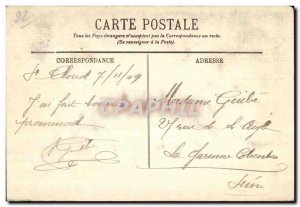 92
CARTE POSTALE
Tous les Pays étrangers n'acceptent pas la Correspondance au recto.
(Se renseigner à la Poste).
CORRESPONDANCE
ADRESSE
St Cloud 7/11/09
J'ai fait bonne
promenade
Madame
27 rue de
La Garenne Colombes
Seine